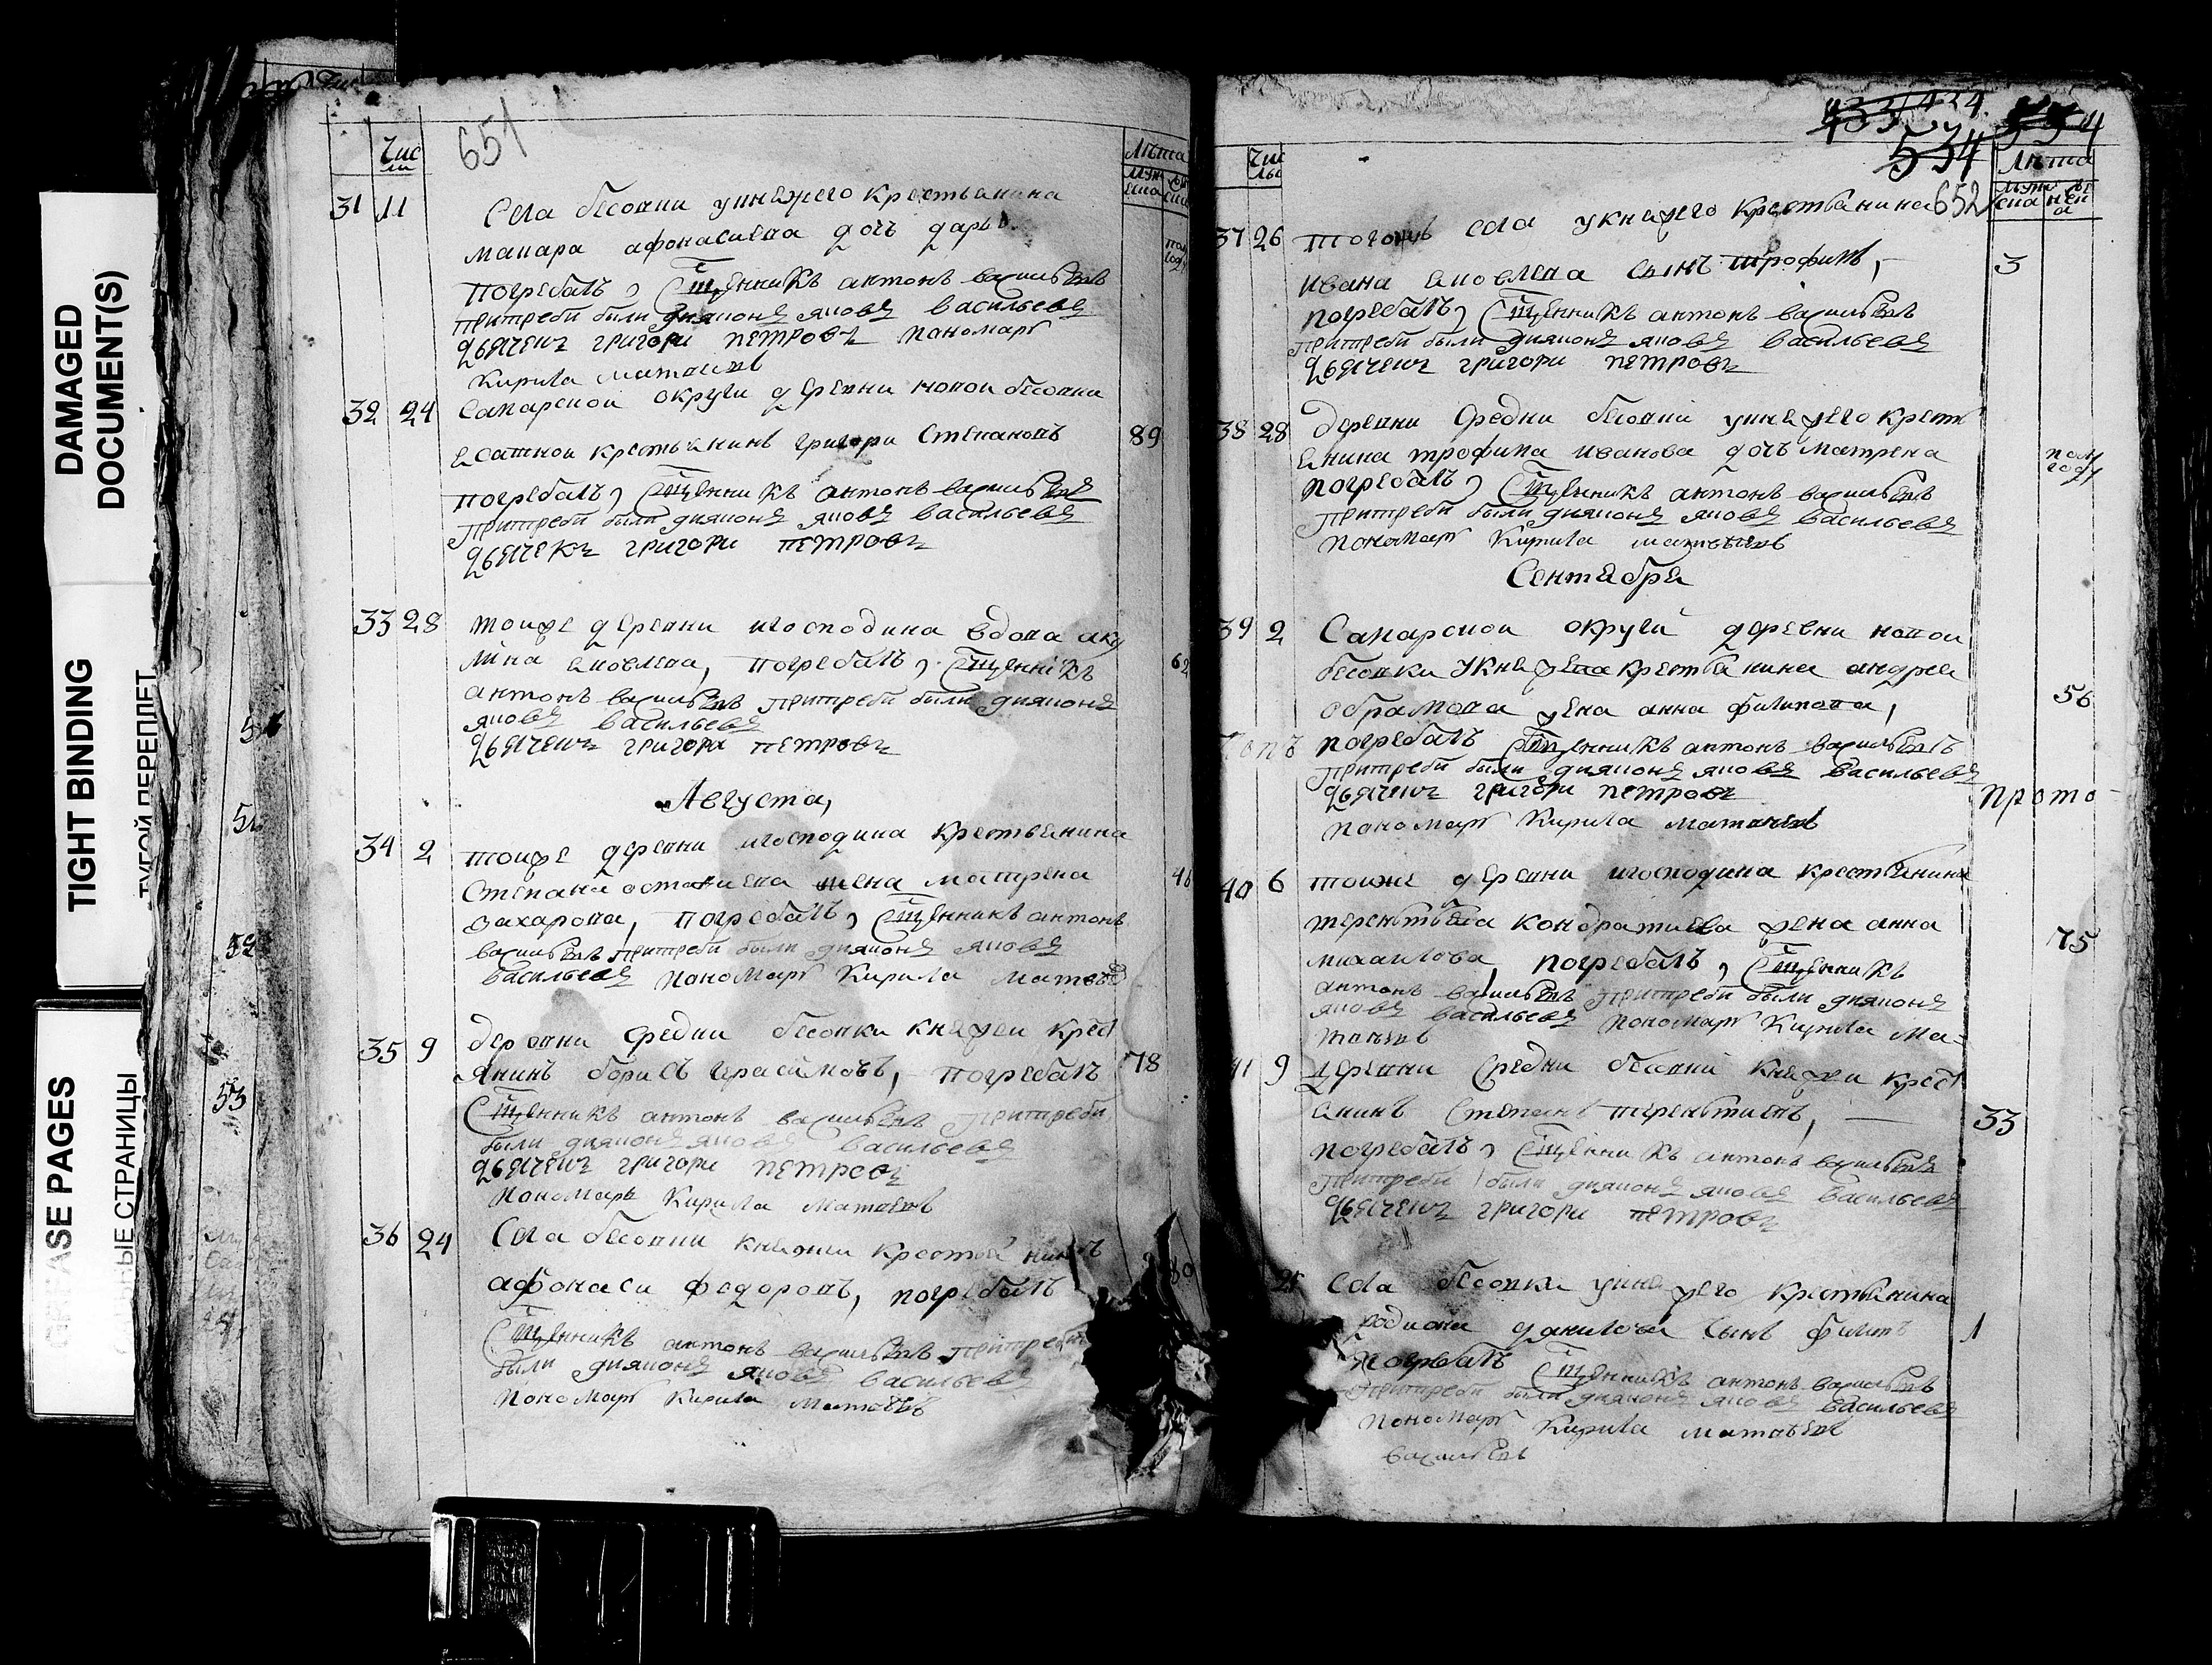 DAMAGED
DOCUMENT(S)
TIGHT BINDING
ТУГОЙ ПЕРЕПЛЕТ
ASE PAGES
НЫЕ СТРАНИЦЫ
651
Чис
ла
Лѣта
31 11 Села бесовки укняжего крестьянина
макара афонасиева дочь дарья
полгоду
погребалъ, Сщенникъ антонъ васильевъ
притреби были дияконъ яковъ васильевъ
дьячекъ григори петровъ пономарь
кирила матвеевъ
32 24 Самарской округи деревни новой бесовки
ясашной крестьянинъ григори Степановъ
89
погребалъ, Сщенникъ антонъ васильевъ
притреби были дияконъ яковъ васильевъ
дьячекъ григори петровъ
33 28 тоиже деревни игосподина вдова аку
лина яковлева, погребалъ, Сщенникъ
62
антонъ васильевъ притреби были дияконъ
яковъ васильевъ
дьячекъ григори петровъ
Августа,
34 2 тоиже деревни игосподина крестьянина
Степана остафиева жена матрена
захарова, погребалъ, Сщенникъ антонъ
васильевъ притреби были дияконъ яковъ
васильевъ пономарь Кирила матвеевъ
35 9 деревни Средни бесовки княжеи крест
янинъ борисъ герасимовъ, погребалъ
78
Сщенникъ антонъ васильевъ притреби
были дияконъ яковъ васильевъ
дьячекъ григори петровъ
пономарь Кирила матвеевъ
36 24 Села бесовки княжеи крестьянинъ
афонаси федоровъ, погребалъ
80
Сщенникъ антонъ васильевъ притреби
были дияконъ яковъ васильевъ
пономарь Кирила матвеевъ
534
652
Чис
лы
Лѣта
37 26 тогожъ села укняжего крестьянина
ивана яковлева сынъ трофимъ,
3
погребалъ, Сщенникъ антонъ васильевъ
притреби были дияконъ яковъ васильевъ
дьячекъ григори петровъ
38 28 деревни Средни бесовки укняжего крестъ
янина трофима иванова дочь матрена
полу
году
погребалъ, Сщенникъ антонъ васильевъ
притреби были дияконъ яковъ васильевъ
пономарь Кирила матвеевъ
Сентября
39 2 Самарской округи деревни новой
бесовки укняжева крестьянина андрея
обрамова жена анна филипова,
56
погребалъ Сщенникъ антонъ васильевъ
притреби были дияконъ яковъ васильевъ
дьячекъ григори петровъ
прото
пономарь Кирила матвеевъ
40 6 тоиже деревни игосподина крестьянина
терентьева кондратиева жена анна
75
михаилова, погребалъ, Сщенникъ
антонъ васильевъ притреби были дияконъ
яковъ васильевъ пономарь Кирила Ма-
твеевъ
41 9 деревни Средни бесовки княжеи крест
янинъ Степанъ терентьевъ,
33
погребалъ, Сщенникъ антонъ васильевъ
притреби были дияконъ яковъ васильевъ
дьячекъ григори петровъ
Села бесовки укняжего крестьянина
родиона данилова сынъ филипъ
1
погребалъ Сщенникъ антонъ васильевъ
притреби были дияконъ яковъ васильевъ
пономарь Кирила матвеевъ
васильевъ